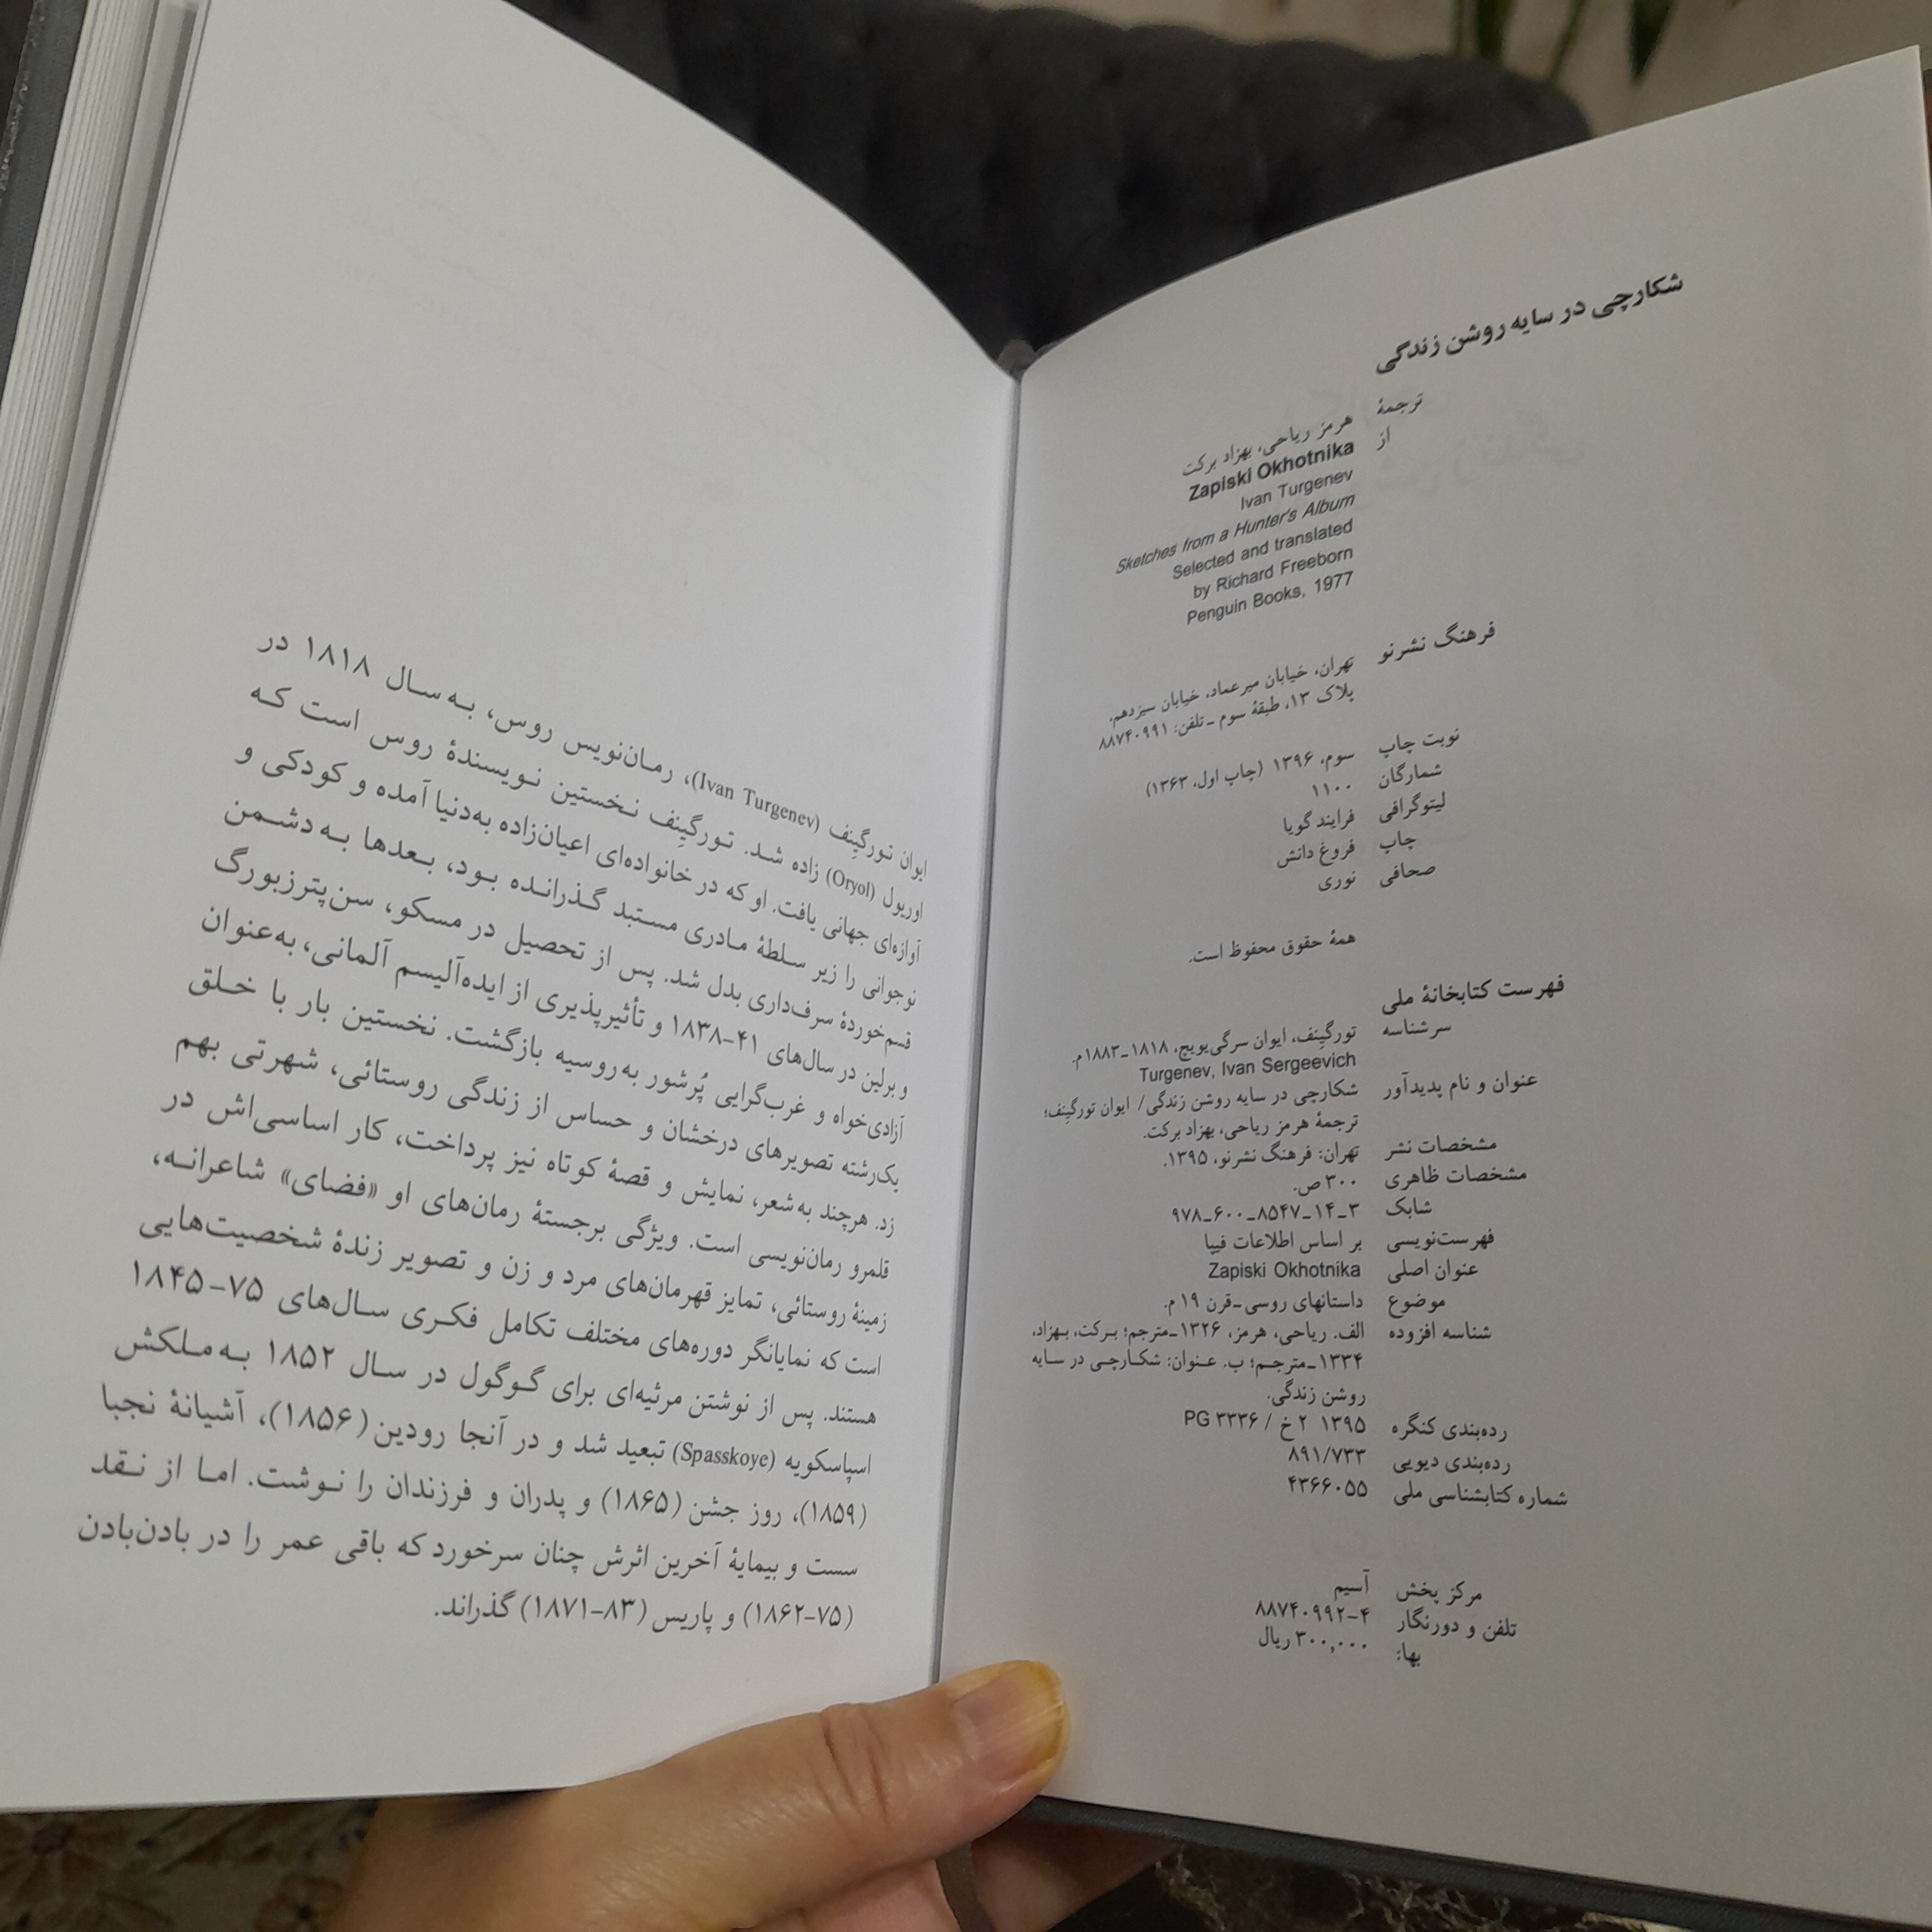 شکارچی در سایه روشن زندگی
ترجمهٔ هرمز ریاحی، بهزاد برکت
از Zapiski Okhotnika
Ivan Turgenev
Sketches from a Hunter's Album
Selected and translated
by Richard Freeborn
Penguin Books, 1977
فرهنگ نشرنو تهران، خیابان میرعماد، خیابان سیزدهم،
پلاک ۱۳، طبقهٔ سوم ـ تلفن: ۸۸۷۴۰۹۹۱
نوبت چاپ سوم، ۱۳۹۶ (چاپ اول، ۱۳۶۳)
شمارگان ۱۱۰۰
لیتوگرافی فرایند گویا
چاپ فروغ دانش
صحافی نوری
همهٔ حقوق محفوظ است.
فهرست کتابخانهٔ ملی
سرشناسه تورگِنِف، ایوان سرگی‌یویچ، ۱۸۱۸ـ۱۸۸۳م.
Turgenev, Ivan Sergeevich
عنوان و نام پدیدآور شکارچی در سایه روشن زندگی/ ایوان تورگِنِف؛
ترجمهٔ هرمز ریاحی، بهزاد برکت.
مشخصات نشر تهران: فرهنگ نشرنو، ۱۳۹۵.
مشخصات ظاهری ۳۰۰ ص.
شابک ۹۷۸ـ۶۰۰ـ۸۵۴۷ـ۱۴ـ۳
فهرست‌نویسی بر اساس اطلاعات فیپا
عنوان اصلی Zapiski Okhotnika
موضوع داستانهای روسی ـ قرن ۱۹ م.
شناسه افزوده الف. ریاحی، هرمز، ۱۳۲۶ـ مترجم؛ برکت، بهزاد،
۱۳۳۴ـ مترجم؛ ب. عنوان: شکارچی در سایه
روشن زندگی.
رده‌بندی کنگره PG ۳۳۳۶ / ۲ خ ۱۳۹۵
رده‌بندی دیویی ۸۹۱/۷۳۳
شماره کتابشناسی ملی ۴۳۶۶۰۵۵
مرکز پخش آسیم
تلفن و دورنگار ۸۸۷۴۰۹۹۲-۴
بها: ۳۰۰,۰۰۰ ریال
ایوان تورگِنِف (Ivan Turgenev)، رمان‌نویس روس، به سال ۱۸۱۸ در
اوریول (Oryol) زاده شد. تورگِنِف نخستین نویسندهٔ روس است که
آوازه‌ای جهانی یافت. او که در خانواده‌ای اعیان‌زاده به‌دنیا آمده و کودکی و
نوجوانی را زیر سلطهٔ مادری مستبد گذرانده بود، بعدها به دشمن
قسم‌خوردهٔ سرف‌داری بدل شد. پس از تحصیل در مسکو، سن‌پترزبورگ
و برلین در سال‌های ۴۱-۱۸۳۸ و تأثیرپذیری از ایده‌آلیسم آلمانی، به‌عنوان
آزادی‌خواه و غرب‌گرایی پُرشور به روسیه بازگشت. نخستین بار با خلق
یک‌رشته تصویرهای درخشان و حساس از زندگی روستائی، شهرتی بهم
زد. هرچند به شعر، نمایش و قصهٔ کوتاه نیز پرداخت، کار اساسی‌اش در
قلمرو رمان‌نویسی است. ویژگی برجستهٔ رمان‌های او «فضای» شاعرانه،
زمینهٔ روستائی، تمایز قهرمان‌های مرد و زن و تصویر زندهٔ شخصیت‌هایی
است که نمایانگر دوره‌های مختلف تکامل فکری سال‌های ۷۵-۱۸۴۵
هستند. پس از نوشتن مرثیه‌ای برای گوگول در سال ۱۸۵۲ به ملکش
اسپاسکویه (Spasskoye) تبعید شد و در آنجا رودین (۱۸۵۶)، آشیانهٔ نجبا
(۱۸۵۹)، روز جشن (۱۸۶۵) و پدران و فرزندان را نوشت. اما از نقد
سست و بیمایهٔ آخرین اثرش چنان سرخورد که باقی عمر را در بادن‌بادن
(۷۵-۱۸۶۲) و پاریس (۸۳-۱۸۷۱) گذراند.